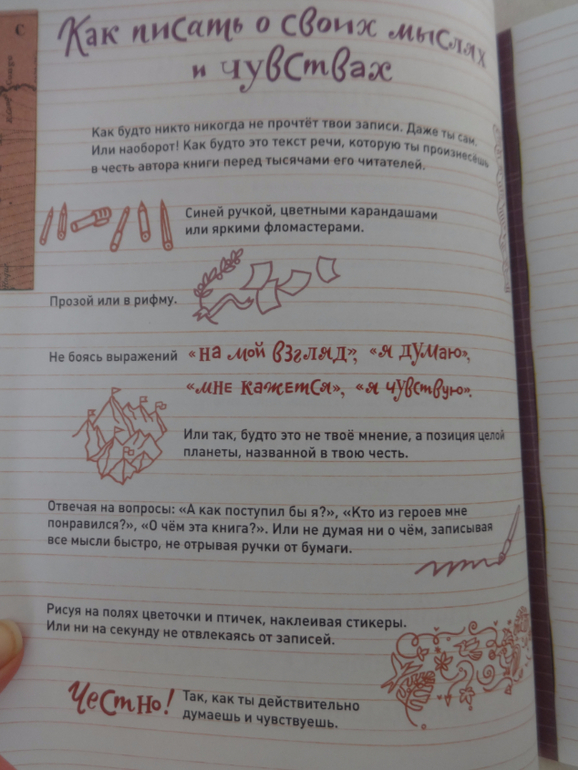 Как писать о своих мыслях
и чувствах
Как будто никто никогда не прочтёт твои записи. Даже ты сам.
Или наоборот! Как будто это текст речи, которую ты произнесёшь
в честь автора книги перед тысячами его читателей.
Синей ручкой, цветными карандашами
или яркими фломастерами.
Прозой или в рифму.
Не боясь выражений «на мой взгляд», «я думаю»,
«мне кажется», «я чувствую».
Или так, будто это не твоё мнение, а позиция целой
планеты, названной в твою честь.
Отвечая на вопросы: «А как поступил бы я?», «Кто из героев мне
понравился?», «О чём эта книга?». Или не думая ни о чём, записывая
все мысли быстро, не отрывая ручки от бумаги.
Рисуя на полях цветочки и птичек, наклеивая стикеры.
Или ни на секунду не отвлекаясь от записей.
Честно! Так, как ты действительно
думаешь и чувствуешь.